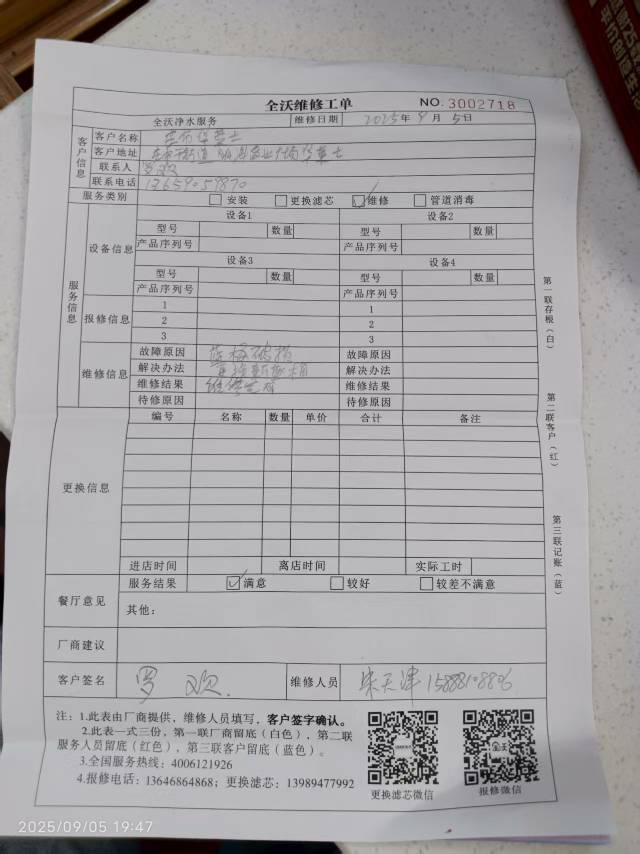 全沃维修工单 NO.3002718
全沃净水服务 维修日期 2025年9月5日
客户信息
客户名称
客户地址
联系人 罗欢
联系电话 13659059870
服务类别 安装 更换滤芯 维修 管道消毒
服务信息
设备信息
设备1 设备2
型号 数量 型号 数量
产品序列号 产品序列号
设备3 设备4
型号 数量 型号 数量
产品序列号 产品序列号
报修信息
1 1
2 2
3 3
维修信息
故障原因 故障原因
解决办法 解决办法
维修结果 维修完成 维修结果
待修原因 待修原因
更换信息
编号 名称 数量 单价 合计 备注
进店时间 离店时间 实际工时
餐厅意见
服务结果 满意 较好 较差不满意
其他:
厂商建议
客户签名 罗欢. 维修人员 朱天津 15888108806
注: 1.此表由厂商提供，维修人员填写，客户签字确认。
2.此表一式三份，第一联厂商留底（白色），第二联
服务人员留底（红色），第三联客户留底（蓝色）。
3.全国服务热线: 4006121926
4.报修电话: 13646864868; 更换滤芯: 13989477992
更换滤芯微信 报修微信
第一联存根（白）
第二联客户（红）
第三联记账（蓝）
2025/09/05 19:47